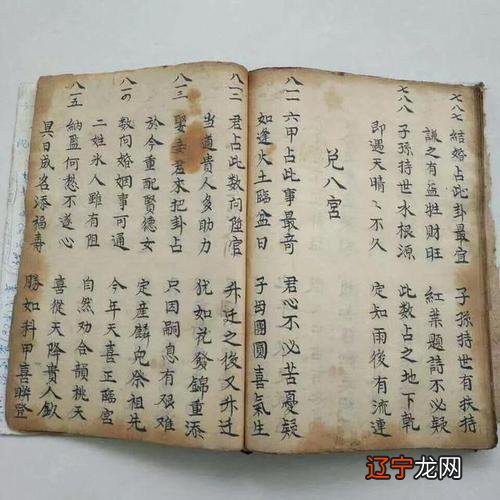 七八七 結婚占此卦最宜 子孫持世有扶持
謙之有蓝牲財旺 紅葉題詩不必疑
七八八 子孫持世水根源 此數占之地下乾
即遇天晴〻不久 定知雨後有流連
兑八宮
八一一 六甲占此事最奇 君心不必苦憂疑
如逢火土臨盆日 子母團圓喜氣生
八一二 君占此数向陞官 升迁之後又升迁
當道貴人多助力 犹如花發錦重添
八一三 娶妻君來把卦占 只因嗣息有艰难
於今重配賢德女 定産麟兒祭祖先
八一四 数向婚姻事可通 今年天喜正臨宮
二姓氷人雖有阻 自然劝合韻桃天
八一五 納監何愁不遂心 喜從天降貴人欽
異日成名添福壽 勝如科甲喜聯登
辽宁龙网